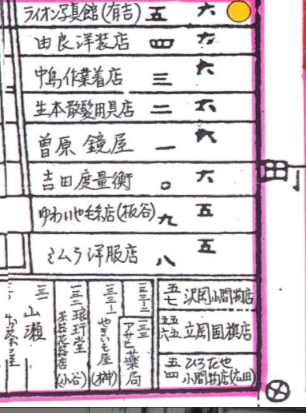 ライオン写真館(有吉) 五 六
由良洋装店 四 六
中島作業着店 三 六
生本散髪用具店 二 六
曽原鏡屋 一 六
吉田度量衡 〇 六
ゆわいや毛糸店(板谷) 九 五
ミムラ洋服店 八 五
五七 沢岡小間物店
五六 五五 立岡国旗店
五四 ひろたや小間物店(広田)
三三-二 三三 アサヒ薬局
三三-一 やきいも屋(榊)
三二 琅玕堂 (小谷)
三一 山瀬
田